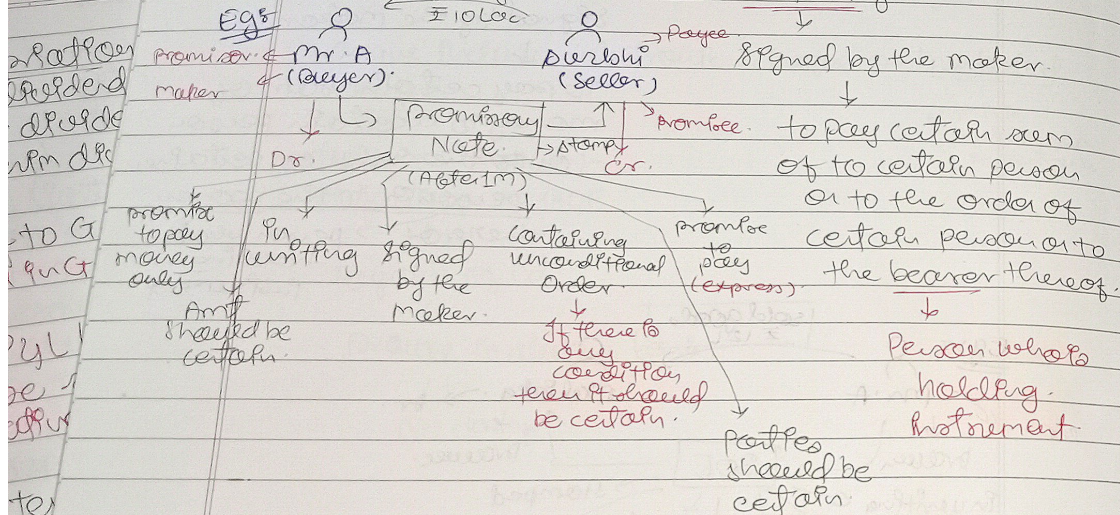 Egs
₹ 10Lac
Promisor
maker
Mr. A
(Buyer).
(Seller)
Payee
Promisee.
Dr.
Cr.
Promissory
Note
Stamp
(After 1m)
promise
to pay
money
only
Amt
should be
certain.
in
writing
signed
by the
maker.
containing
unconditional
order.
If there is
any
condition
then it should
be certain.
promise
to
pay
(express).
Parties
should be
certain.
signed by the maker.
to pay certain sum
of to certain person
or to the order of
certain person or to
the bearer thereof.
Person who is
holding
instrument.
to G
in G